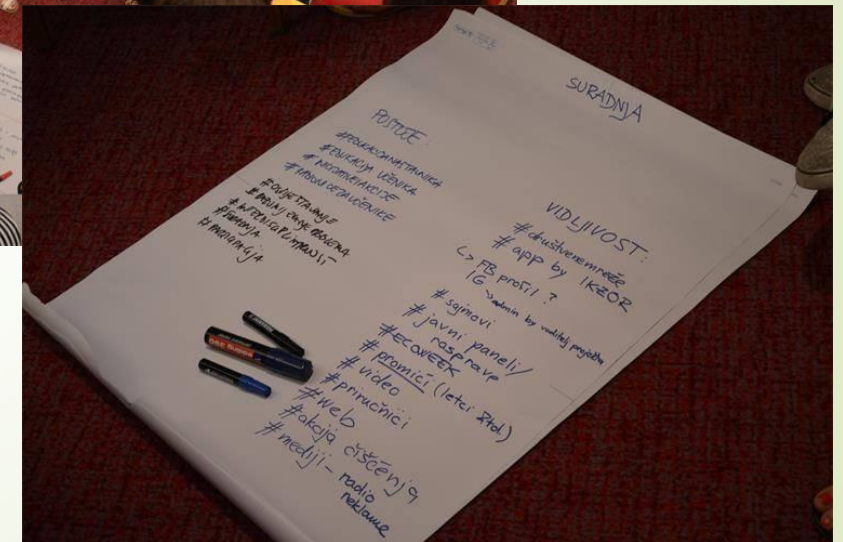 SURADNJA
POSTOJE:
#EDUKACIJA NASTAVNIKA
#EDUKACIJA UČENIKA
#INICIJATIVE I AKCIJE
#OSVJEŠTAVANJE
#SURADNJA
#PROPAGACIJA
VIDLJIVOST:
#društvene mreže
#app by IKZOR
↳ FB profil?
IG ↘ admin by voditelj projekta
#sajmovi
#javni paneli/
rasprave
#ECOWEEK
#promići (letci itd.)
#video
#priručnici
#web
#akcija čišćenja
#mediji - radio
reklame